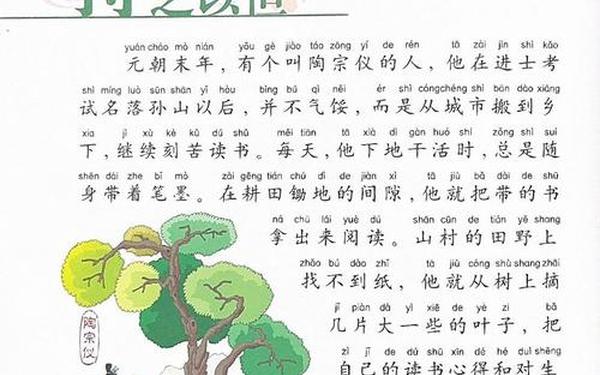 yuán cháo mò nián yǒu gè jiào táo zōng yí de rén tā zài jìn shì kǎo
元朝末年，有个叫陶宗仪的人，他在进士考
shì míng luò sūn shān yǐ hòu bìng bú qì něi ér shì cóng chéng shì bān dào xiāng
试名落孙山以后，并不气馁，而是从城市搬到乡
xia jì xù kè kǔ dú shū měi tiān tā xià dì gàn huó shí zǒng shì suí
下，继续刻苦读书。每天，他下地干活时，总是随
shēn dài zhe bǐ mò zài gēng tián chú dì de jiàn xì tā jiù bǎ dài de shū
身带着笔墨。在耕田锄地的间隙，他就把带的书
ná chū lái yuè dú shān cūn de tián yě shang
拿出来阅读。山村的田野上
zhǎo bú dào zhǐ tā jiù cóng shù shang zhāi
找不到纸，他就从树上摘
jǐ piàn dà yì xiē de yè zi bǎ
几片大一些的叶子，把
zì jǐ de dú shū xīn dé hé duì shēng
自己的读书心得和对生
陶宗仪